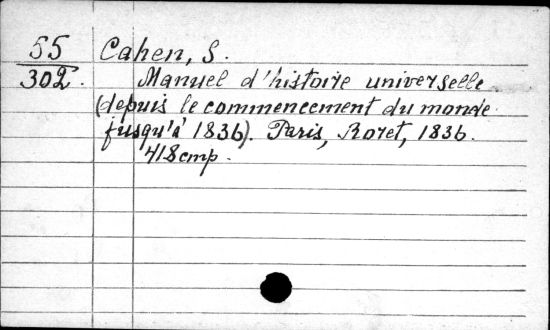 55 Cahen, S.
302. Manuel d'histoire universelle
(depuis le commencement du monde
jusqu'à 1836). Paris, Roret, 1836.
418 cmp.